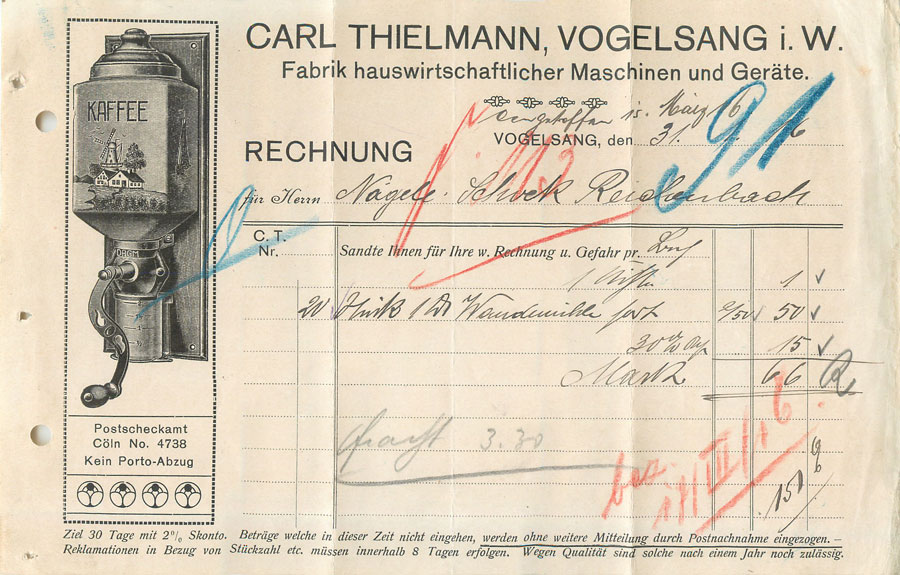 CARL THIELMANN, VOGELSANG i. W.
Fabrik hauswirtschaftlicher Maschinen und Geräte.
KAFFEE
eingetroffen 15. März 16
VOGELSANG, den 31. 16
91
RECHNUNG
für Herrn Nägele Reichenbach
C. T.
Nr.
Sandte Ihnen für Ihre w. Rechnung u. Gefahr pr.
1 Kiste 1
20 Stück Wandmühle 2/50 50
30% 15
Mark 66
DRGM
Fracht 3.30
bez.
17/III/16
Postscheckamt
Cöln No. 4738
Kein Porto-Abzug
Ziel 30 Tage mit 2% Skonto. Beträge welche in dieser Zeit nicht eingehen, werden ohne weitere Mitteilung durch Postnachnahme eingezogen. –
Reklamationen in Bezug von Stückzahl etc. müssen innerhalb 8 Tagen erfolgen. Wegen Qualität sind solche nach einem Jahr noch zulässig.